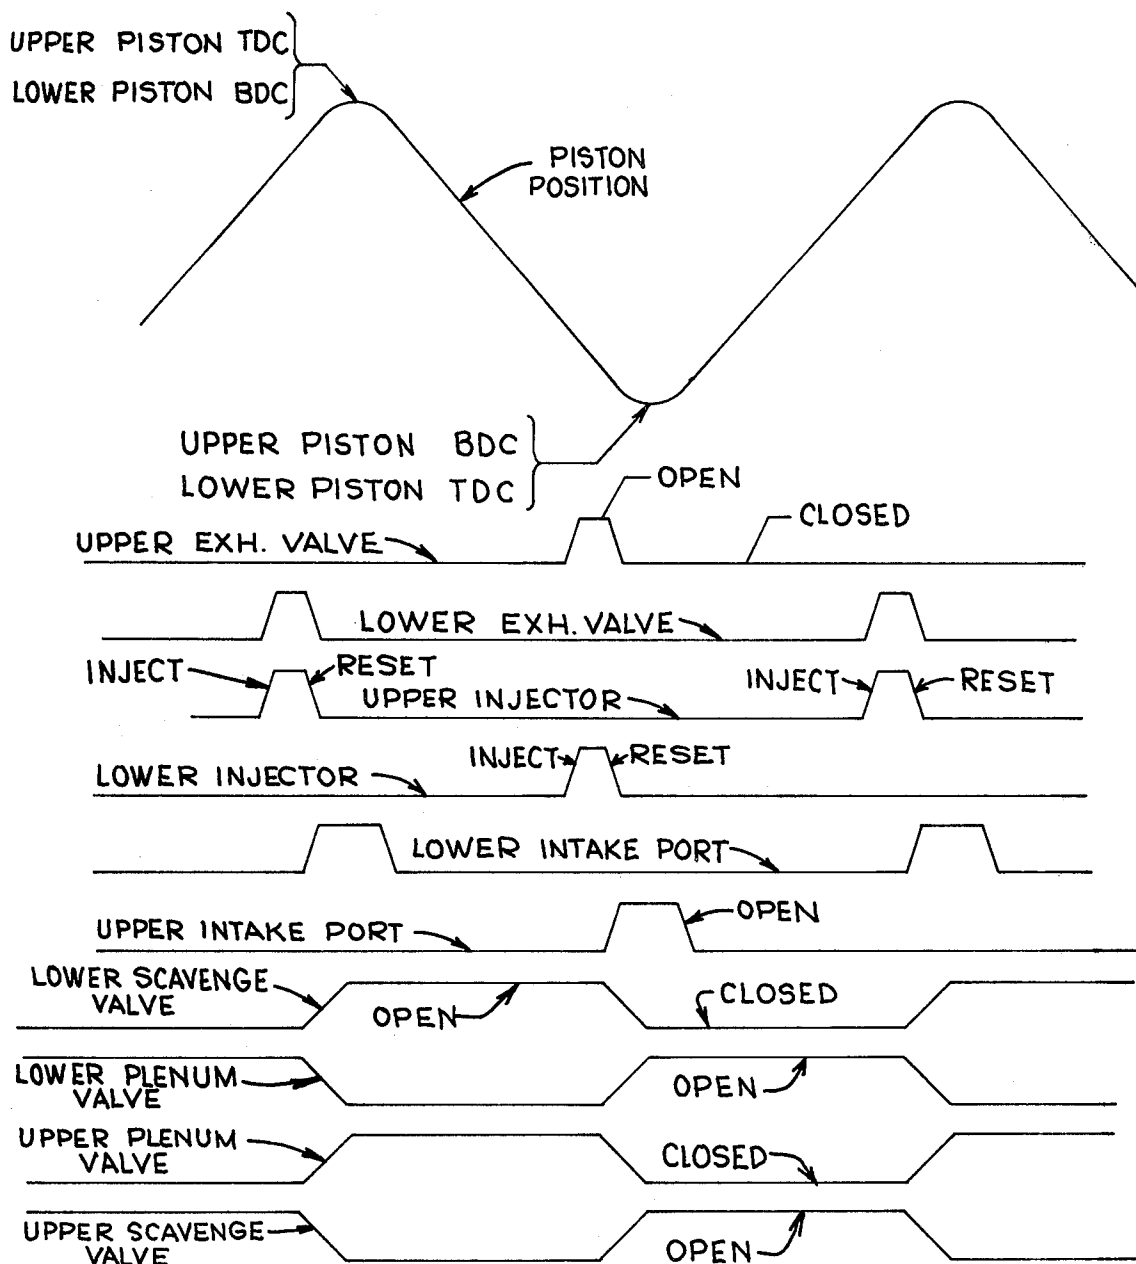 UPPER PISTON TDC
LOWER PISTON BDC
PISTON
POSITION
UPPER PISTON BDC
LOWER PISTON TDC
OPEN
CLOSED
UPPER EXH. VALVE
LOWER EXH. VALVE
INJECT
RESET
UPPER INJECTOR
INJECT
RESET
LOWER INJECTOR
INJECT
RESET
LOWER INTAKE PORT
UPPER INTAKE PORT
OPEN
LOWER SCAVENGE
VALVE
OPEN
CLOSED
LOWER PLENUM
VALVE
OPEN
UPPER PLENUM
VALVE
CLOSED
UPPER SCAVENGE
VALVE
OPEN